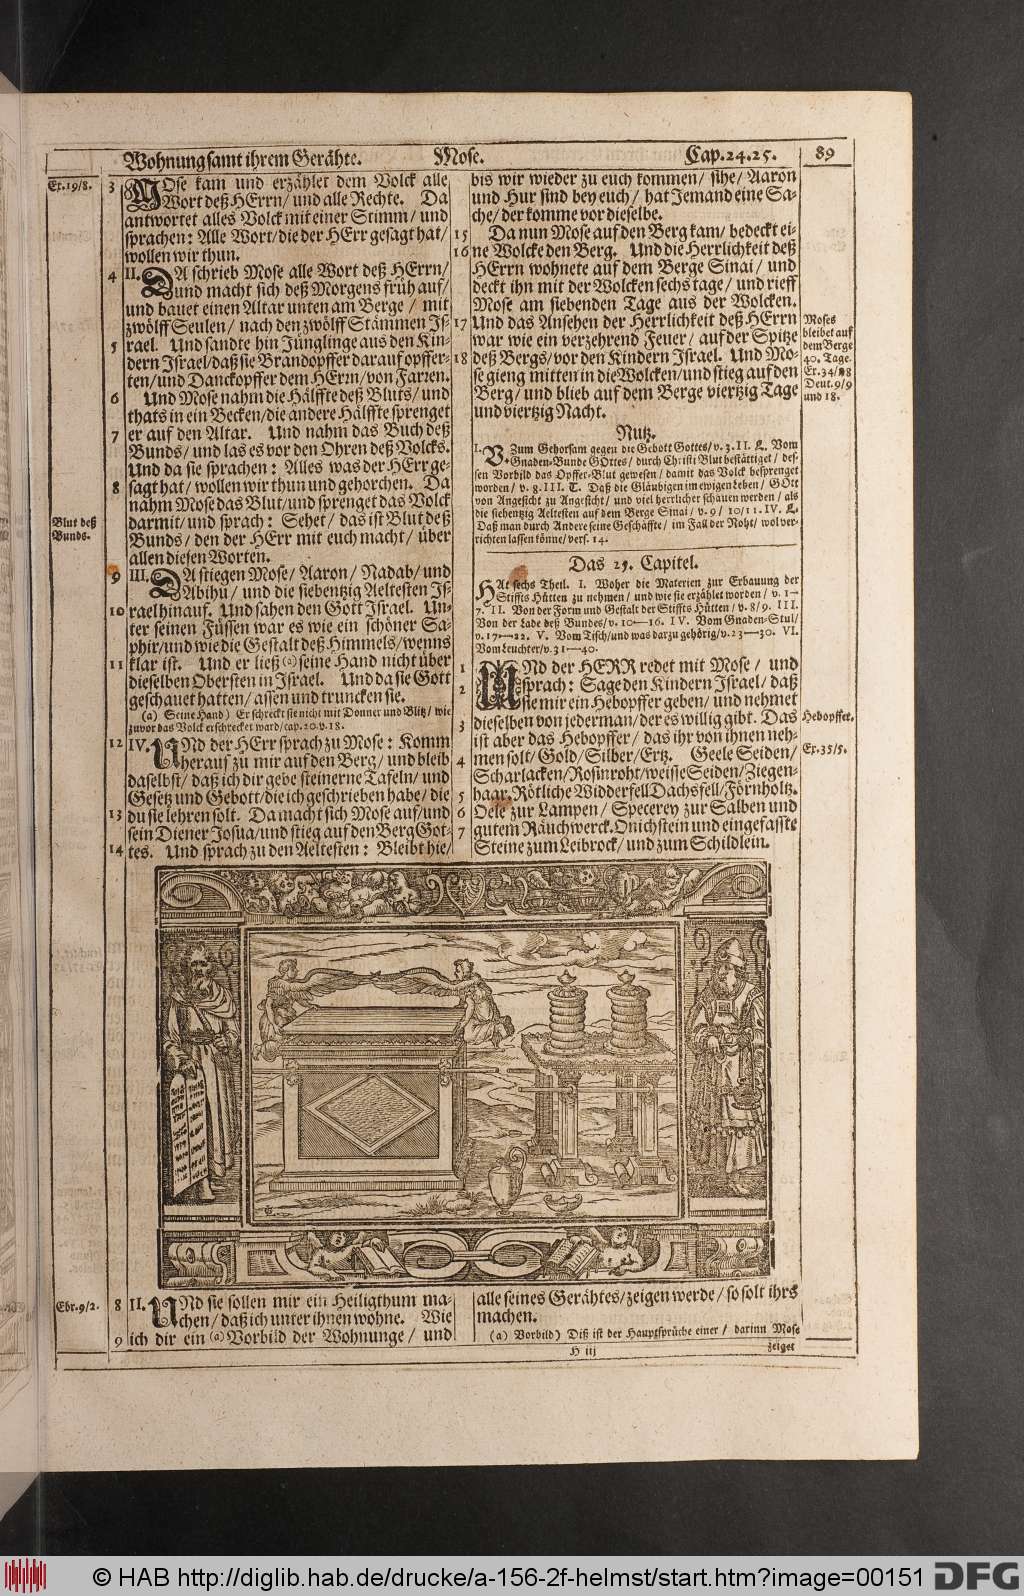 Wohnung samt ihrem Gerähte. Mose. Cap. 24. 25. 89
Ex. 19/8.
3 MOse kam und erzählet dem Volck alle
Wort deß HErrn/ und alle Rechte. Da
antwortet alles Volck mit einer Stimm/ und
sprachen: Alle Wort/ die der HErr gesagt hat/
wollen wir thun.
4 II. DA schrieb Mose alle Wort deß HErrn/
und macht sich deß Morgens früh auf/
und bauet einen Altar unten am Berge/ mit
zwölff Seulen/ nach den zwölff Stämmen Jſ-
5 rael. Und sandte hin Jünglinge aus den Kin-
dern Jsrael/ daß sie Brandopffer darauf opffer-
ten/ und Danckopffer dem HErrn/ von Farren.
6 Und Mose nahm die Hälffte deß Bluts/ und
thats in ein Becken/ die andere Hälffte sprenget
7 er auf den Altar. Und nahm das Buch deß
Bunds/ und las es vor den Ohren deß Volcks.
Und da sie sprachen: Alles was der HErr ge-
8 sagt hat/ wollen wir thun und gehorchen. Da
nahm Mose das Blut/ und sprenget das Volck
Blut deß
Bunds.
darmit/ und sprach: Sehet/ das ist Blut deß
Bunds/ den der HErr mit euch macht/ über
allen diesen Worten.
9 III. DA stiegen Mose/ Aaron/ Nadab/ und
Abihu/ und die siebentzig Aeltesten Jſ-
10 rael hinauf. Und sahen den Gott Jsrael. Un-
ter seinen Füssen war es wie ein schöner Sa-
phir/ und wie die Gestalt deß Himmels/ wenns
11 klar ist. Und er ließ (a) seine Hand nicht über
dieselben Obersten in Jsrael. Und da sie Gott
geschauet hatten/ assen und truncken sie.
(a) Seine Hand) Er schreckt sie nicht mit Donner und Blitz/ wie
zuvor das Volck erschrecket ward/ cap. 20. v. 18.
12 IV. UNd der HErr sprach zu Mose: Komm
herauf zu mir auf den Berg/ und bleib
daselbst/ daß ich dir gebe steinerne Tafeln/ und
Gesetz und Gebott/ die ich geschrieben habe/ die
13 du sie lehren solt. Da macht sich Mose auf/ und
sein Diener Josua/ und stieg auf den Berg Got-
14 tes. Und sprach zu den Aeltesten: Bleibt hie/
bis wir wieder zu euch kommen/ sihe/ Aaron
und Hur sind bey euch/ hat Jemand eine Sa-
che/ der komme vor dieselbe.
15 Da nun Mose auf den Berg kam/ bedeckt ei-
16 ne Wolcke den Berg. Und die Herrlichkeit deß
HErrn wohnete auf dem Berge Sinai/ und
deckt ihn mit der Wolcken sechs tage/ und rieff
Mose am siebenden Tage aus der Wolcken.
17 Und das Ansehen der Herrlichkeit deß HErrn
war wie ein verzehrend Feuer/ auf der Spitze
18 deß Bergs/ vor den Kindern Jsrael. Und Mo-
se gieng mitten in die Wolcken/ und stieg auf den
Berg/ und blieb auf dem Berge viertzig Tage
und viertzig Nacht.
Moses
bleibet auf
dem Berge
40. Tage.
Ex. 34/28
Deut. 9/9
und 18.
Nutz.
I. Zum Gehorsam gegen die Gebott Gottes/ v. 3. II. L. Vom
Gnaden-Bunde GOttes/ durch Christi Blut bestättiget/ des-
sen Vorbild das Opffer-Blut gewesen/ damit das Volck besprenget
worden/ v. 8. III. T. Daß die Gläubigen im ewigen Leben/ GOtt
von Angesicht zu Angesicht/ und viel herrlicher schauen werden/ als
die siebentzig Aeltesten auf dem Berge Sinai/ v. 9/ 10/ 11. IV. L.
Daß man durch Andere seine Geschäffte/ im Fall der Noht/ wol ver-
richten lassen könne/ vers. 14.
Das 25. Capitel.
HAt sechs Theil. I. Woher die Materien zur Erbauung der
Stiffts Hütten zu nehmen/ und wie sie erzählet worden/ v. 1—
7. II. Von der Form und Gestalt der Stiffts Hütten/ v. 8/ 9. III.
Von der Lade deß Bundes/ v. 10—16. IV. Vom Gnaden-Stul/
v. 17—22. V. Vom Tisch/ und was darzu gehörig/ v. 23—30. VI.
Vom Leuchter/ v. 31—40.
1 UNd der HERR redet mit Mose/ und
2 sprach: Sage den Kindern Jsrael/ daß
sie mir ein Hebopffer geben/ und nehmet
3 dieselben von jederman/ der es willig gibt. Das
Hebopffer.
ist aber das Hebopffer/ das ihr von ihnen neh-
4 men solt/ Gold/ Silber/ Ertz. Geele Seiden/
Ex. 35/5.
Scharlacken/ Rosinroht/ weisse Seiden/ Ziegen-
5 haar. Rötliche Widderfell Dachsfell/ Förnholtz.
6 Oele zur Lampen/ Specerey zur Salben und
7 gutem Räuchwerck. Onichstein und eingefasste
Steine zum Leibrock/ und zum Schildlein.
Ebr. 9/2.
8 II. UNd sie sollen mir ein Heiligthum ma-
chen/ daß ich unter ihnen wohne. Wie
9 ich dir ein (a) Vorbild der Wohnunge/ und
alle seines Gerähtes/ zeigen werde/ so solt ihrs
machen.
(a) Vorbild) Diß ist der Hauptsprüche einer/ darinn Mose
H iij
zeiget
© HAB http://diglib.hab.de/drucke/a-156-2f-helmst/start.htm?image=00151
DFG